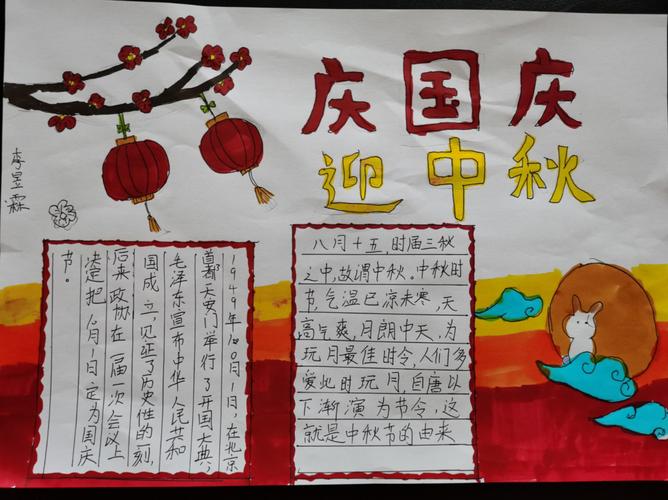 庆国庆
迎中秋
李昱霖
1949年10月1日,在北京
首都天安门举行了开国大典,
毛泽东宣布中华人民共和
国成立,见证了历史性的刻,
后来政协在一届一次会议上
决定把10月1日定为国庆
节。
八月十五,时届三秋
之中,故谓中秋。中秋时
节,气温已凉未寒,天
高气爽,月朗中天,为
玩月最佳时令,人们多
爱此时玩月,自唐以
下渐演为节令,这
就是中秋节的由来